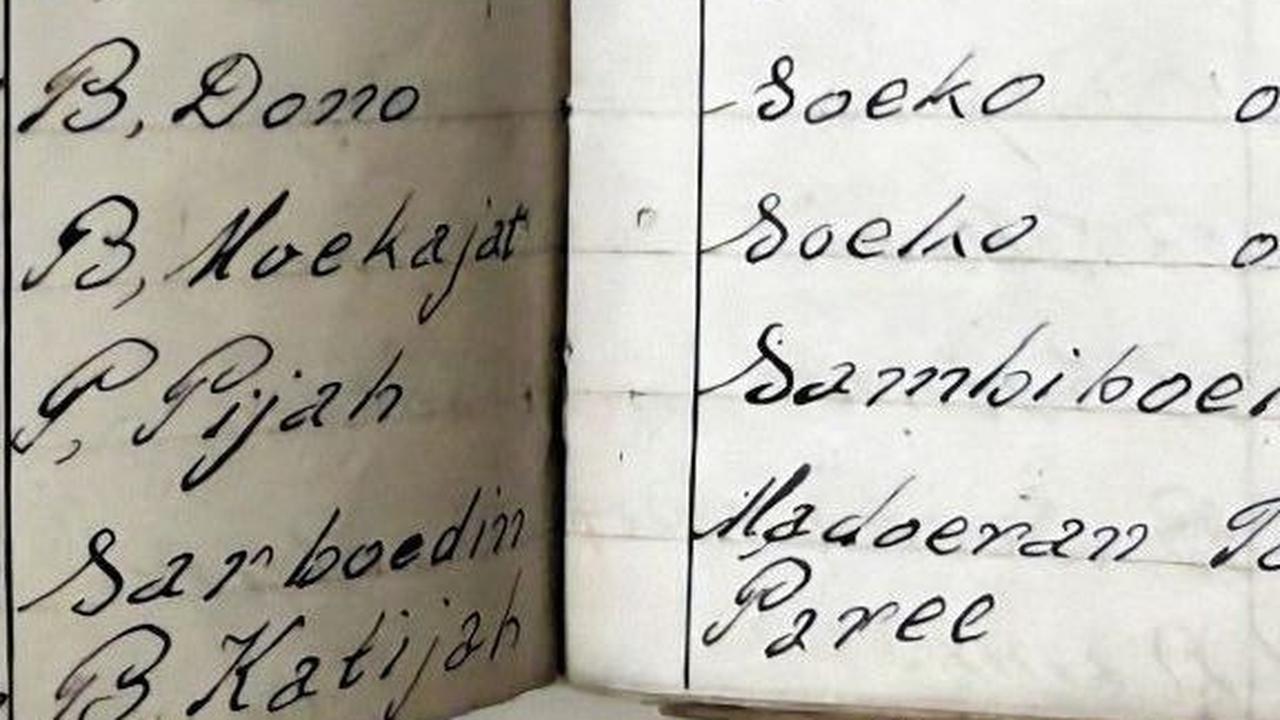 B, Dono Soeko o
B, Moekajat Soeko o
P, Pijah Sambiboel
Sarboedin Madoeran
B, Katijah Paree